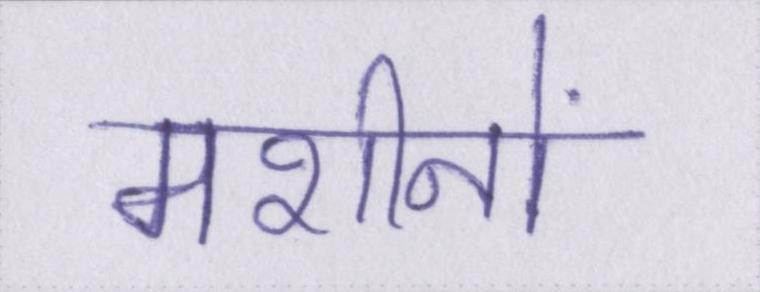 मशीनों